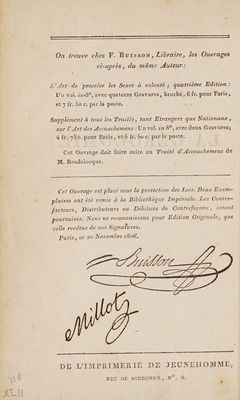 On trouve chez F. Buisson, Libraire, les Ouvrages
ci-après, du même Auteur:
L'Art de procréer les Sexes à volonté; quatrième Edition:
Un vol. in-8°, avec quatorze Gravures, broché, 6 fr. pour Paris,
et 7 fr. 50 c. par la poste.
Supplément à tous les Traités, tant Etrangers que Nationaux,
sur l'Art des Accouchemens: Un vol. in 8°, avec deux Gravures;
4 fr. 75 c. pour Paris, et 6 fr. 50 c. par la poste.
Cet Ouvrage doit faire suite au Traité d'Accouchemens de
M. Baudelocque.
Cet Ouvrage est placé sous la protection des Lois. Deux Exem-
plaires ont été remis à la Bibliothèque Impériale. Les Contre-
facteurs, Distributeurs ou Débitans de Contrefaçons, seront
poursuivis. Nous ne reconnaissons pour Edition Originale, que
celle revêtue de nos Signatures.
Paris, ce 20 Novembre 1806.
Buisson
Millot
DE L'IMPRIMERIE DE JEUNEHOMME,
RUE DE SORBONNE, N°. 4.